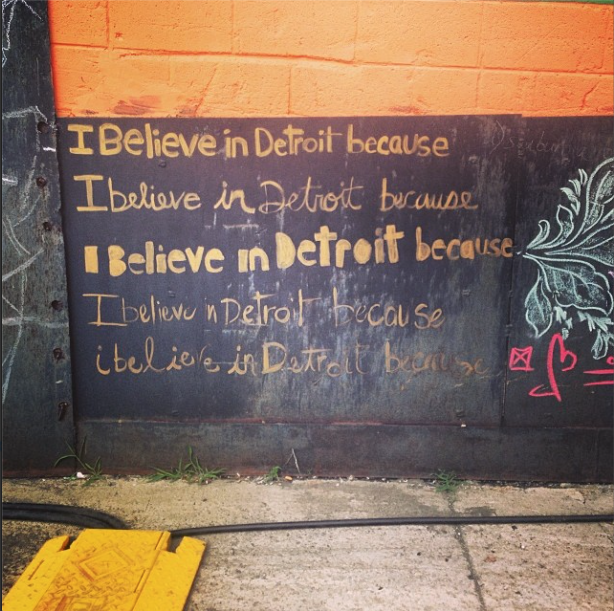 I Believe in Detroit because
I believe in Detroit because
I Believe in Detroit because
I believe in Detroit because
i believe in Detroit because